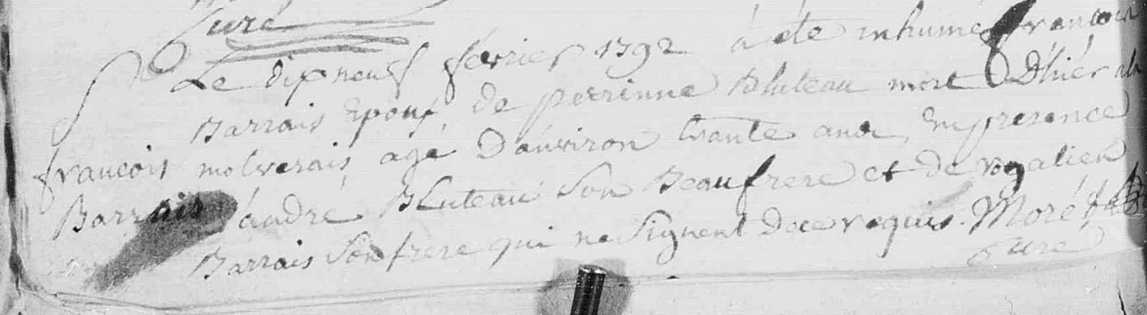 Curé
Le dixneuf février 1792 à été inhumé françois
Barrais Epoux de perrinne Bluteau mort D'hier a la
agé D'anviron trante ans, En presence
andré Bluteau Son Beaufrere et de rogatien
Barrais Son frere qui ne Signent De ce requis. Moré
Curé
françois
Barrais